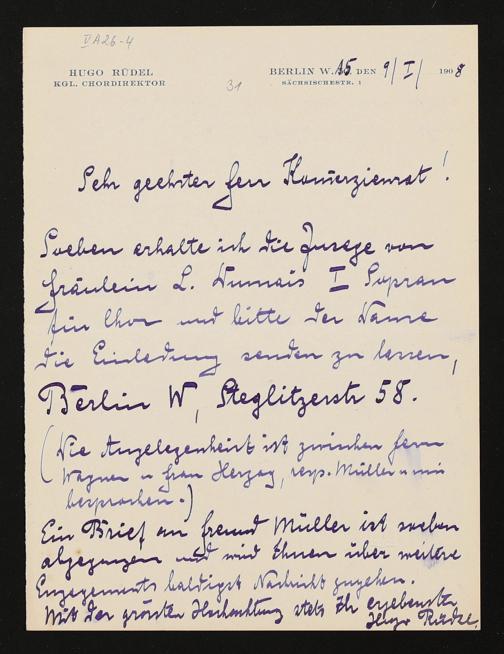 VA26-4
HUGO RÜDEL
KGL. CHORDIREKTOR
31
BERLIN W. 15. DEN 9/I/ 1908
SÄCHSISCHESTR. 1
Sehr geehrter Herr Komerzienrat!
Soeben erhalte ich die Zusage von
Fräulein L. Dumais I Sopran
für Chor und bitte der Dame
die Einladung senden zu lassen,
Berlin W, Steglitzerstr 58.
(Die Angelegenheit ist zwischen Herrn
Wagner u Frau Herzog, resp. Müller u mir
besprochen.)
Ein Brief an Freund Müller ist soeben
abgegangen und wird Ihnen über weitere
Engagements baldigst Nachricht zugehen.
Mit der grössten Hochachtung stets Ihr ergebenster
Hugo Rüdel.